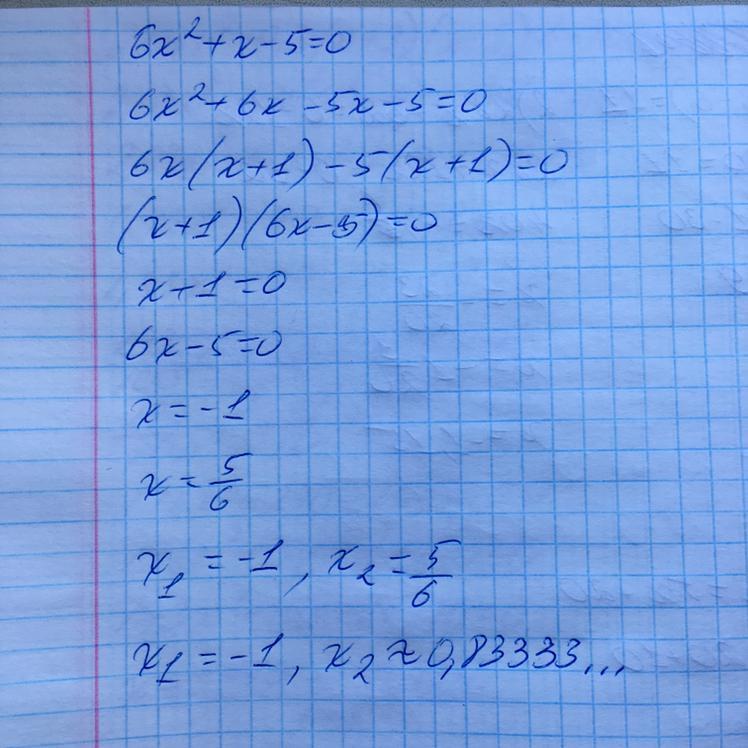 6x²+x-5=0
6x²+6x-5x-5=0
6x(x+1)-5(x+1)=0
(x+1)(6x-5)=0
x+1=0
6x-5=0
x=-1
x=5/6
x₁=-1, x₂=5/6
x₁=-1, x₂≈0,83333...